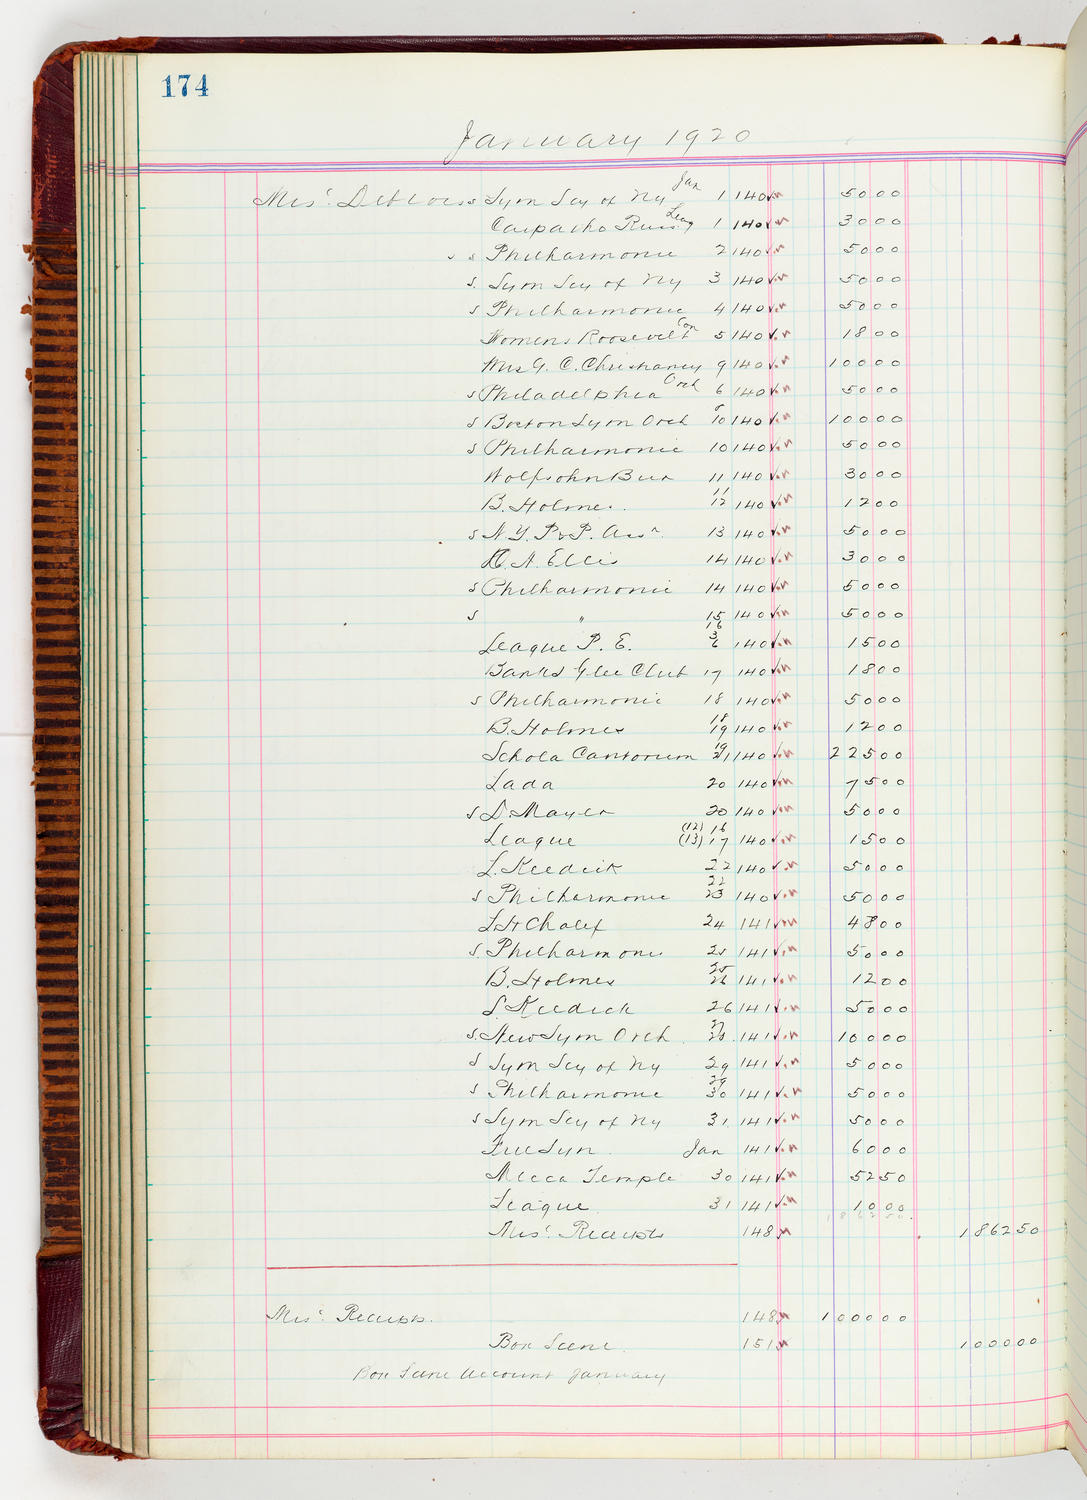 174
January 1920
Mis'. Debtors s Sym Scy of Ny Jan 1 140 50 00
Carpatho Russ. Leag 1 140 30 00
s s Philharmonic 2 140 50 00
s. Sym Scy of Ny 3 140 50 00
s Philharmonic 4 140 50 00
Womens Roosevelt Con 5 140 18 00
Mrs G. C. Chrishaney 9 140 100 00
s Philadelphia Orch 6 140 50 00
s Boston Sym Orch 8 10 140 100 00
s Philharmonic 10 140 50 00
Wolfsohn Bur 11 140 30 00
B. Holmes. 11 12 140 12 00
s N.Y. P&P. Assn. 13 140 50 00
A. Ellis 14 140 30 00
s Philharmonic 14 140 50 00
s " 15 16 140 50 00
League P. E. 3 6 140 15 00
Banks Glee Club 17 140 18 00
s Philharmonic 18 140 50 00
B. Holmes 18 19 140 12 00
Schola Cantorum 19 21 140 225 00
Lada 20 140 75 00
s D. Mayer 20 140 50 00
League (12) 16 (13) 17 140 15 00
L. Keedick 22 140 50 00
s Philharmonic 22 23 140 50 00
L H Chalif 24 141 48 00
s. Philharmonic 25 141 50 00
B. Holmes 25 26 141 12 00
L. Keedick 26 141 50 00
s. New Sym Orch 27 28 141 100 00
s Sym Scy of Ny 29 141 50 00
s Philharmonic 29 30 141 50 00
s Sym Scy of Ny 31 141 50 00
Free Syn. Jan 141 60 00
Mecca Temple 30 141 52 50
League 31 141 10 00
1862 50
Mis'. Receipts 148 1862 50
Mis'. Receipts. 148 1000 00
Box Scene. 151 1000 00
Box Scene account January